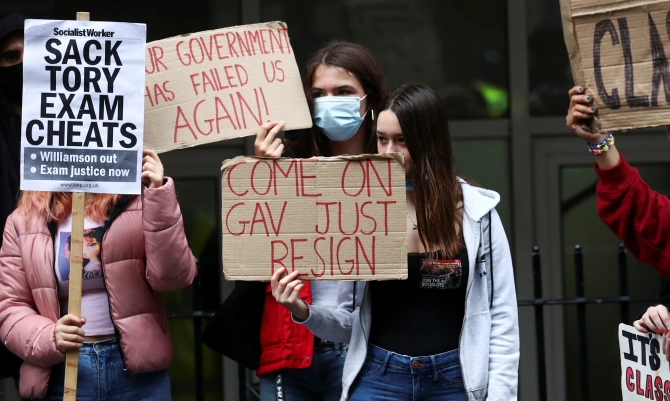 Socialist Worker
SACK
TORY
EXAM
CHEATS
• Williamson out
• Exam justice now
UR GOVERNMENT
HAS FAILED US
AGAIN!
COME ON
GAV JUST
RESIGN
CLA
IT'S
CLASS
IT'S